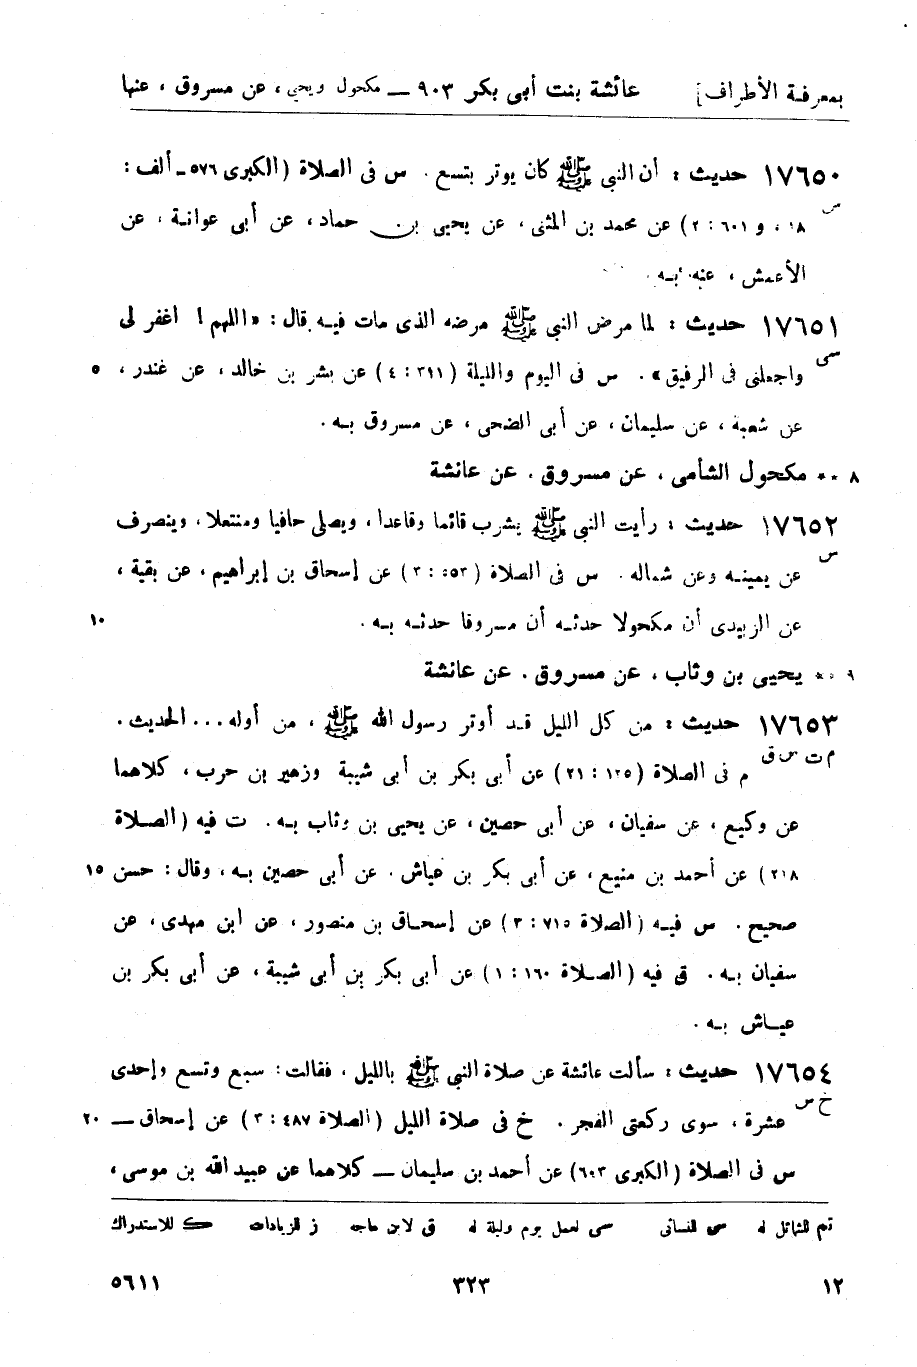 بمعرفة الأطراف] عائشة بنت أبى بكر ٩٠٣ — مكحول ويحيى ، عن مسروق ، عنها
١٧٦٥٠ حديث : أن النبي ﷺ كان يوتر بتسع . س فى الصلاة (الكبرى ٥٧٦ ـ ألف :
س
١٨ ، و ٦٠١ : ٢) عن محمد بن المثنى ، عن يحيى بن حماد ، عن أبى عوانة ، عن
الأعمش ، عنه به .
١٧٦٥١ حديث : لما مرض النبي ﷺ مرضه الذى مات فيه قال : «اللهم ! اغفر لى
سى
واجعلنى فى الرفيق» . س فى اليوم والليلة (٣١١ : ٤) عن بشر بن خالد ، عن غندر ، ٥
عن شعبة ، عن سليمان ، عن أبى الضحى ، عن مسروق به .
٨ ** مكحول الشأمى ، عن مسروق . عن عائشة
١٧٦٥٢ حديث : رأيت النبي ﷺ يشرب قائما وقاعدا ، ويصلى حافيا ومنتعلا ، وينصرف
س
عن يمينه وعن شماله . س فى الصلاة (٥٥٣ : ٣) عن إسحاق بن إبراهيم ، عن بقية ،
عن الزبيدى أن مكحولا حدثه أن مسروقا حدثه به . ١٠
٩ ** يحيى بن وثاب ، عن مسروق . عن عائشة
١٧٦٥٣ حديث : من كل الليل قد أوتر رسول الله ﷺ ، من أوله ... الحديث .
م ت س ق
م فى الصلاة (١٢٥ : ٢١) عن أبى بكر بن أبى شيبة وزهير بن حرب ، كلاهما
عن وكيع ، عن سفيان ، عن أبى حصين ، عن يحيى بن وثاب به . ت فيه (الصلاة
٢١٨) عن أحمد بن منيع ، عن أبى بكر بن عياش . عن أبى حصين به ، وقال : حسن ١٥
صحيح . س فيه (الصلاة ٧١٥ : ٣) عن إسحاق بن منصور ، عن ابن مهدى ، عن
سفيان به . ق فيه (الصلاة ١٦٠ : ١) عن أبى بكر بن أبى شيبة ، عن أبى بكر بن
عياش به .
١٧٦٥٤ حديث : سألت عائشة عن صلاة النبي ﷺ بالليل ، فقالت : سبع وتسع وإحدى
خ س
عشرة ، سوى ركعتى الفجر . خ فى صلاة الليل (الصلاة ٤٨٧ : ٣) عن إسحاق — ٢٠
س فى الصلاة (الكبرى ٦٠٣) عن أحمد بن سليمان — كلاهما عن عبيد الله بن موسى ،
تم للشمائل له س للنسائى سى لعمل يوم وليلة له ق لابن ماجه ز للزيادات ك للاستدراك
١٢ ٣٢٣ ٥٦١١